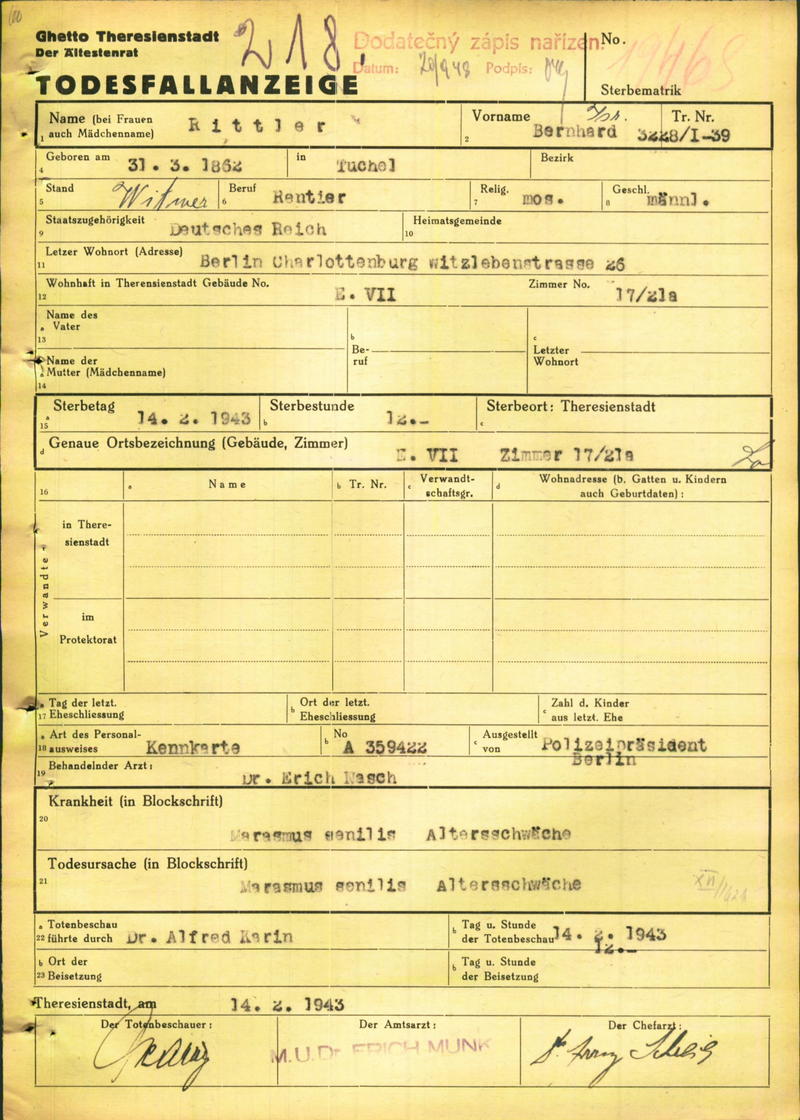 Ghetto Theresienstadt
Der Ältestenrat
218,
Dodatečný zápis nařízen:
Datum: Podpis:
No.
Sterbematrik
TODESFALLANZEIGE
1 Name (bei Frauen auch Mädchenname) Rittler
2 Vorname Bernhard
Tr. Nr. 3228/I-39
4 Geboren am 31. 3. 1862 in Tuchel Bezirk
5 Stand Witwer 6 Beruf Rentier 7 Relig. mos. 8 Geschl. männl.
9 Staatszugehörigkeit Deutsches Reich 10 Heimatsgemeinde
11 Letzer Wohnort (Adresse) Berlin Charlottenburg Witzlebenstrasse 26
12 Wohnhaft in Therensienstadt Gebäude No. E. VII Zimmer No. 17/21a
13 a Name des Vater b Beruf c Letzter Wohnort
14 a Name der Mutter (Mädchenname)
15 a Sterbetag 14. 2. 1943 b Sterbestunde 12.- c Sterbeort: Theresienstadt
d Genaue Ortsbezeichnung (Gebäude, Zimmer) E. VII Zimmer 17/21a
16 a Name b Tr. Nr. c Verwandtschaftsgr. d Wohnadresse (b. Gatten u. Kindern auch Geburtdaten):
Verwandte
in Theresienstadt
im Protektorat
17 a Tag der letzt. Eheschliessung b Ort der letzt. Eheschliessung c Zahl d. Kinder aus letzt. Ehe
18 a Art des Personalausweises Kennkarte b No A 359422 c Ausgestellt von Polizeipräsident Berlin
19 Behandelnder Arzt: Dr. Erich Nasch
Krankheit (in Blockschrift)
20 Marasmus senilis Altersschwäche
Todesursache (in Blockschrift)
21 Marasmus senilis Altersschwäche
22 a Totenbeschau führte durch Dr. Alfred Karin b Tag u. Stunde der Totenbeschau 14. 2. 1943 12.-
23 b Ort der Beisetzung b Tag u. Stunde der Beisetzung
Theresienstadt, am 14. 2. 1943
Der Totenbeschauer: Der Amtsarzt: Der Chefarzt:
M.U.Dr ERICH MUNK